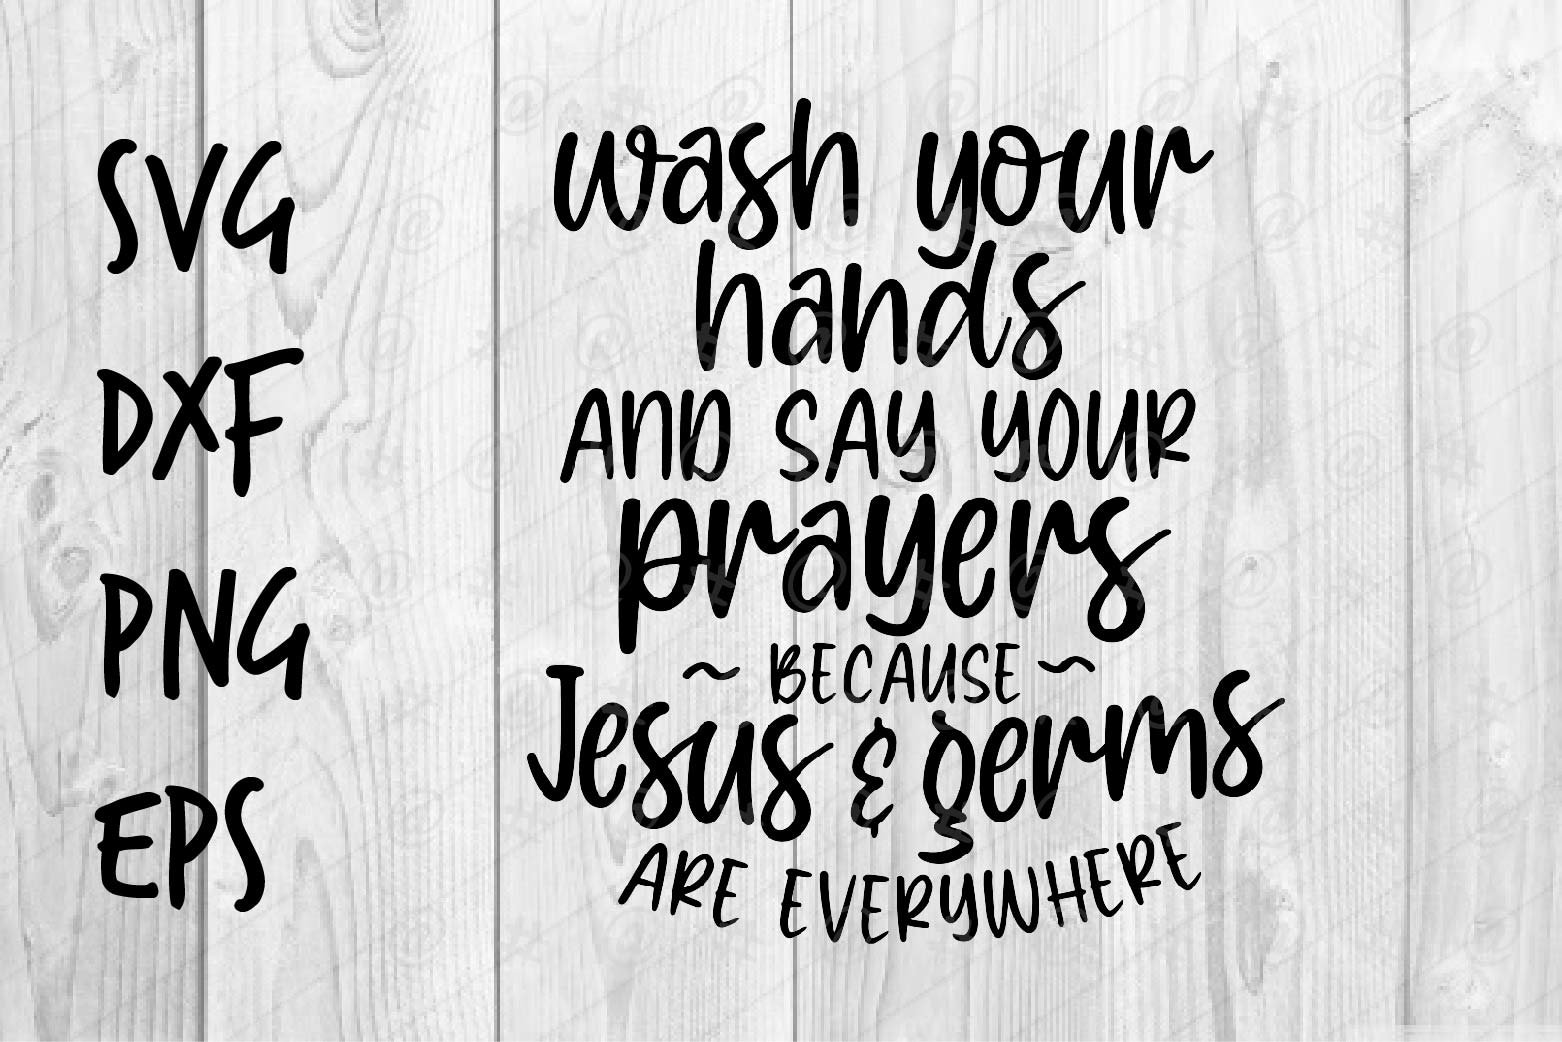 SVG
DXF
PNG
EPS
wash your
hands
AND SAY YOUR
prayers
~ BECAUSE ~
Jesus & germs
ARE EVERYWHERE